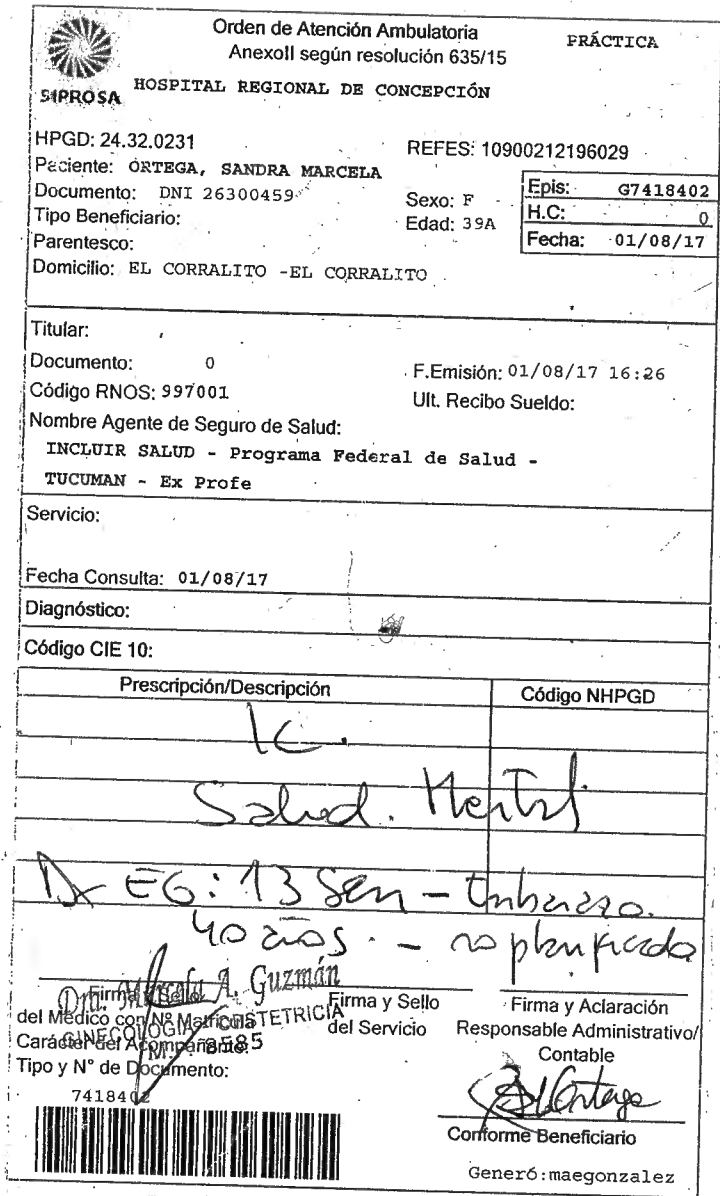 Orden de Atención Ambulatoria
AnexoII según resolución 635/15
PRÁCTICA
SIPROSA
HOSPITAL REGIONAL DE CONCEPCIÓN
HPGD: 24.32.0231
REFES: 10900212196029
Paciente: ORTEGA, SANDRA MARCELA
Documento: DNI 26300459
Sexo: F
Epis: G7418402
Tipo Beneficiario:
Edad: 39A
H.C: 0
Parentesco:
Fecha: 01/08/17
Domicilio: EL CORRALITO -EL CORRALITO
Titular:
Documento: 0
F.Emisión: 01/08/17 16:26
Código RNOS: 997001
Ult. Recibo Sueldo:
Nombre Agente de Seguro de Salud:
INCLUIR SALUD - Programa Federal de Salud -
TUCUMAN - Ex Profe
Servicio:
Fecha Consulta: 01/08/17
Diagnóstico:
Código CIE 10:
Prescripción/Descripción
Código NHPGD
IC.
Salud. Mental
Dx EG: 13 Sem - Embarazo.
40 años. - no planificado
Dra. Marcela A. Guzmán
GINECOLOGIA - OBSTETRICIA
Firma y Sello
del Médico con Nº Matrícula
Firma y Sello
del Servicio
Firma y Aclaración
Responsable Administrativo/
Contable
Carácter del Acompañante:
Tipo y N° de Documento:
7418402
Conforme Beneficiario
Generó:maegonzalez